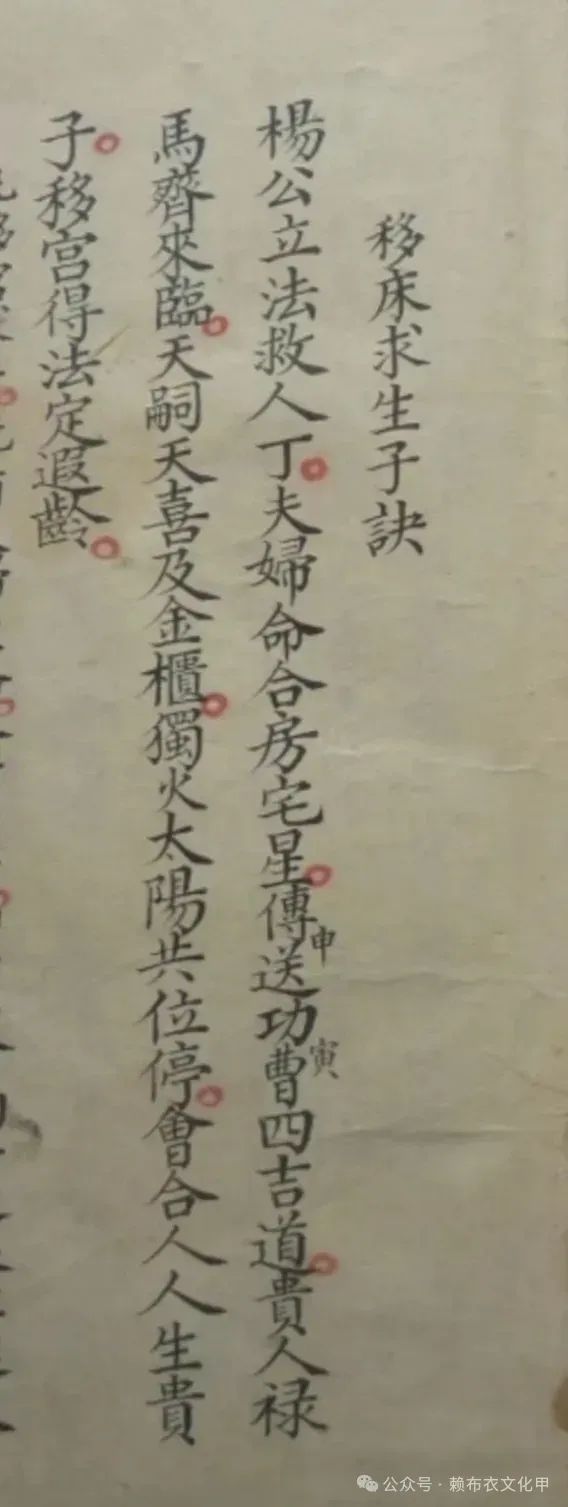 移床求生子訣
楊公立法救人丁。夫婦命合房宅星。傳送申功曹寅四吉道。貴人祿
馬齊來臨。天嗣天喜及金櫃。獨火太陽共位停。會合人人生貴
子。移宮得法定遐齡。
公众号·赖布衣文化甲